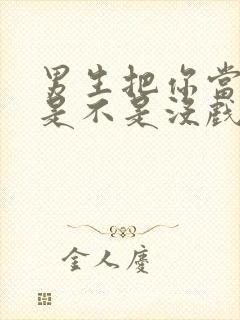 男生把你當
是不是沒戲
金人慶